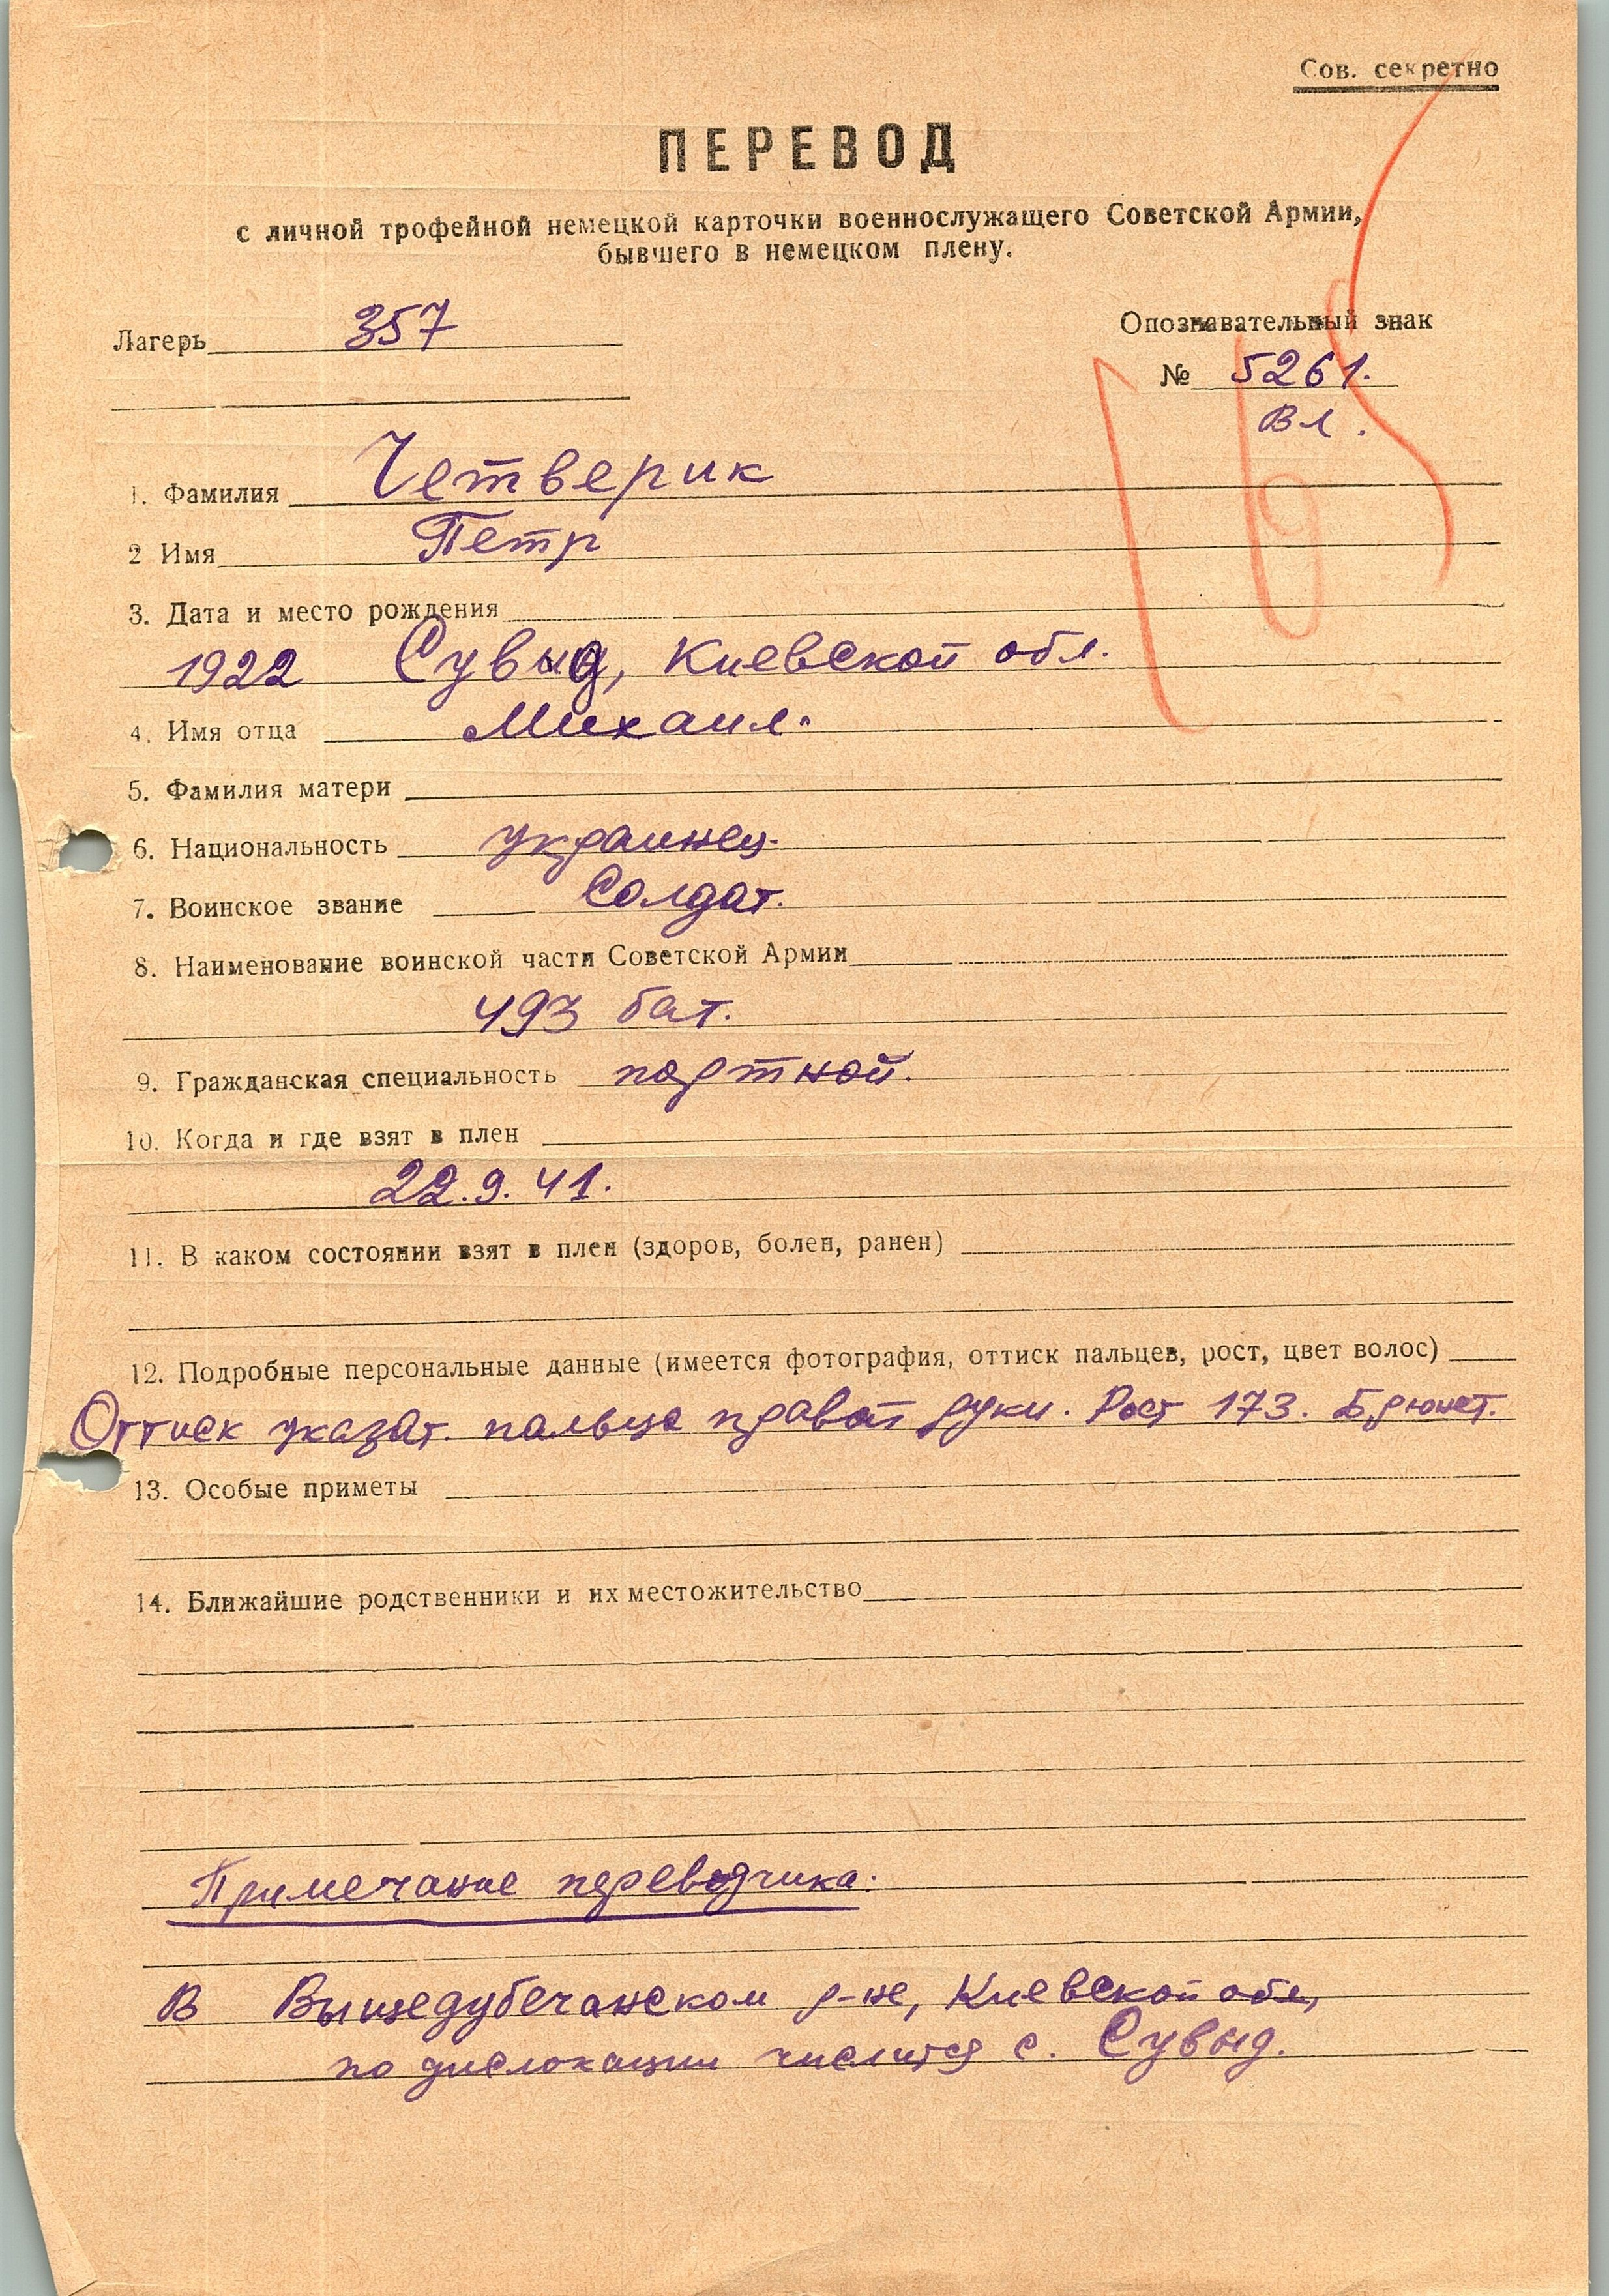 Сов. секретно
ПЕРЕВОД
с личной трофейной немецкой карточки военнослужащего Советской Армии,
бывшего в немецком плену.
Лагерь 357
Опознавательный знак
№ 5261.
Вл.
1. Фамилия Четверик
2 Имя Петр
3. Дата и место рождения
1922 Сувыд, Киевской обл.
4. Имя отца Михаил.
5. Фамилия матери
6. Национальность украинец.
7. Воинское звание Солдат.
8. Наименование воинской части Советской Армии
493 бат.
9. Гражданская специальность портной.
10. Когда и где взят в плен
22.9.41.
11. В каком состоянии взят в плен (здоров, болен, ранен)
12. Подробные персональные данные (имеется фотография, оттиск пальцев, рост, цвет волос)
Оттиск указат. пальца правой руки. Рост 173. Брюнет.
13. Особые приметы
14. Ближайшие родственники и их местожительство
Примечание переводчика:
В Вышедубечанском р-не, Киевской обл,
по дислокации числится с. Сувыд.